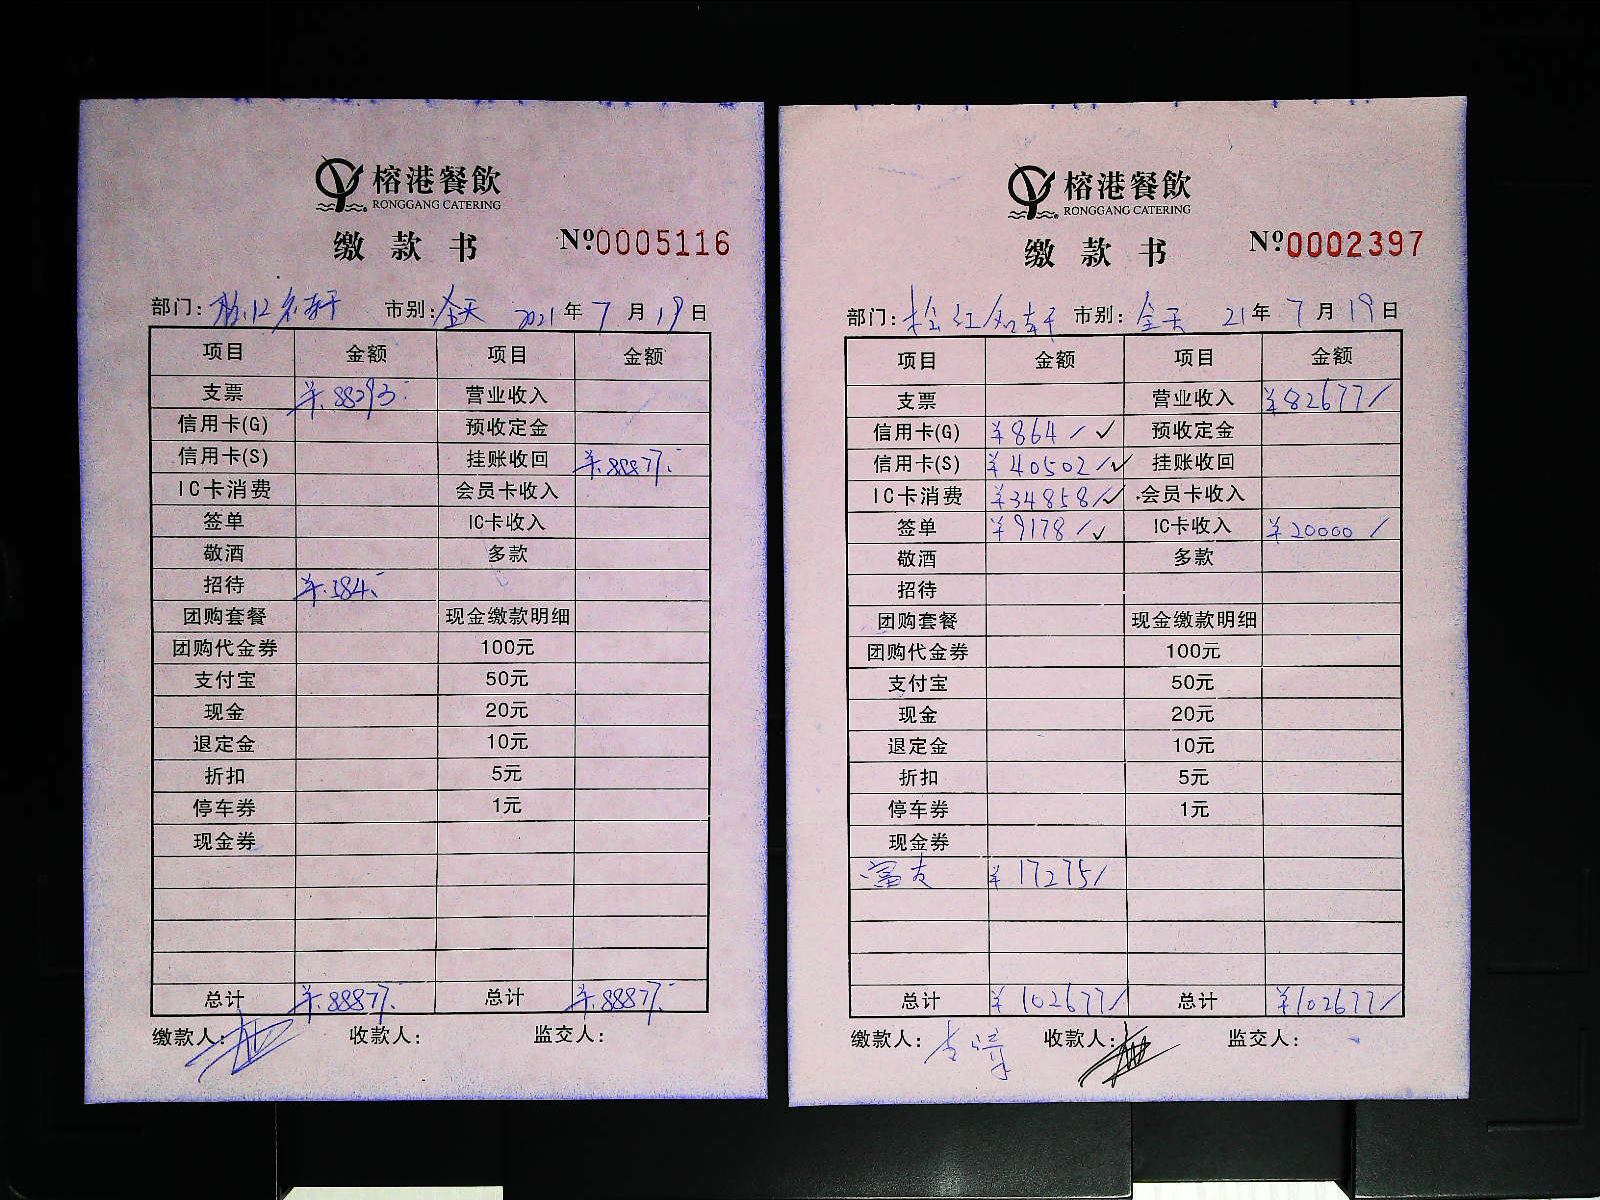 榕港餐飲
RONGGANG CATERING
缴款书 Nº0005116
部门: 市别:全天 2021年7月19日
项目 金额 项目 金额
支票 ¥88293 营业收入
信用卡(G) 预收定金
信用卡(S) 挂账收回 ¥88877
IC卡消费 会员卡收入
签单 IC卡收入
敬酒 多款
招待 ¥584
团购套餐 现金缴款明细
团购代金券 100元
支付宝 50元
现金 20元
退定金 10元
折扣 5元
停车券 1元
现金券
总计 ¥88877 总计 ¥88877
缴款人: 收款人: 监交人:
榕港餐飲
RONGGANG CATERING
缴款书 Nº0002397
部门: 市别:全天 21年7月19日
项目 金额 项目 金额
支票 营业收入 ¥82677/
信用卡(G) ¥864/✓ 预收定金
信用卡(S) ¥40502/✓ 挂账收回
IC卡消费 ¥34858/✓ 会员卡收入
签单 ¥9178/✓ IC卡收入 ¥20000/
敬酒 多款
招待
团购套餐 现金缴款明细
团购代金券 100元
支付宝 50元
现金 20元
退定金 10元
折扣 5元
停车券 1元
现金券
富友 ¥17275/
总计 ¥102677/ 总计 ¥102677/
缴款人: 收款人: 监交人: